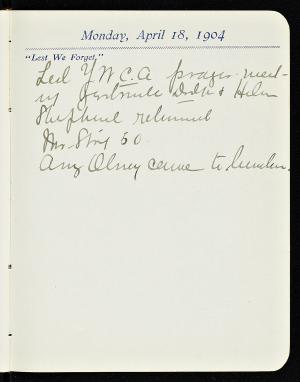 Monday, April 18, 1904
"Lest We Forget,"
Led Y W C. A prayer meet-
ing Gertrude & Helen
Shepherd returned
Mrs. 50
Amy Olney came to lunch.